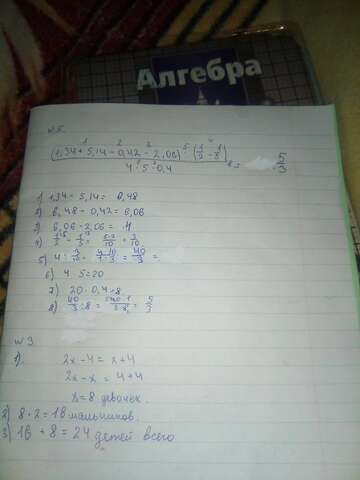 Алгебра
№5.
1 2 3 5 4
(1,34 + 5,14 - 0,42 - 2,06) : (1/2 - 1/5)
4 · 5 · 0,4
= 5/3
1) 1,34 + 5,14 = 6,48
2) 6,48 - 0,42 = 6,06
3) 6,06 - 2,06 = 4
4) 1/2 - 1/5 = 5-2/10 = 3/10
5) 4 : 3/10 = 4·10/1·3 = 40/3 =
6) 4 · 5 = 20
7) 20 · 0,4 = 8
8) 40/3 : 8 = 40·1/3·8 = 5/3
№3.
1) 2x - 4 = x + 4
2x - x = 4 + 4
x = 8 девочек.
2) 8 · 2 = 16 мальчиков.
3) 16 + 8 = 24 детей всего